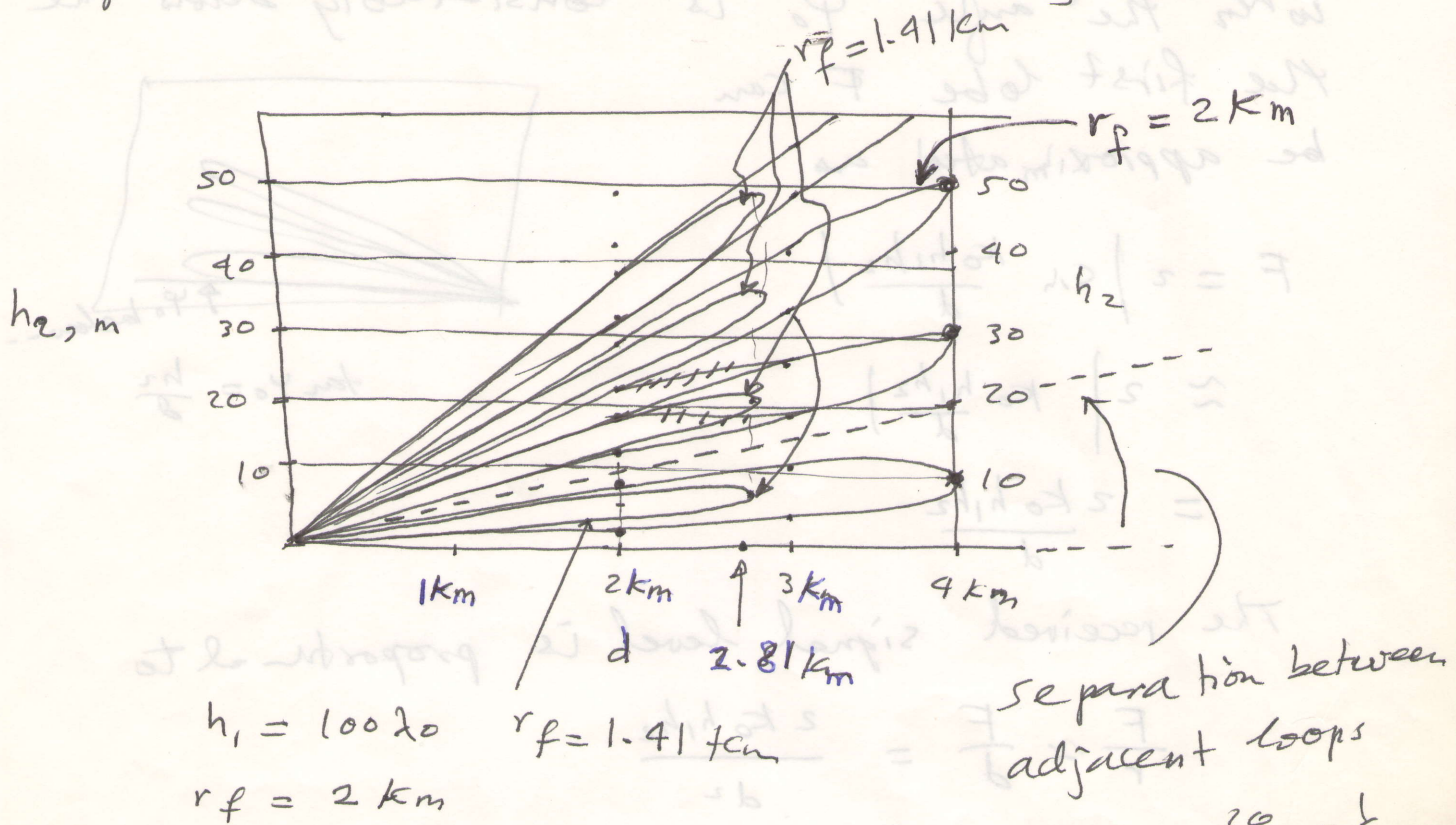 rf = 1.41 km
rf = 2 Km
50
50
40
40
h2, m
h2
30
30
20
20
10
10
1km
2km
3km
4 km
d
2.81 km
h1 = 100 λ0
rf = 1.41 km
rf = 2 km
separation between
adjacent loops